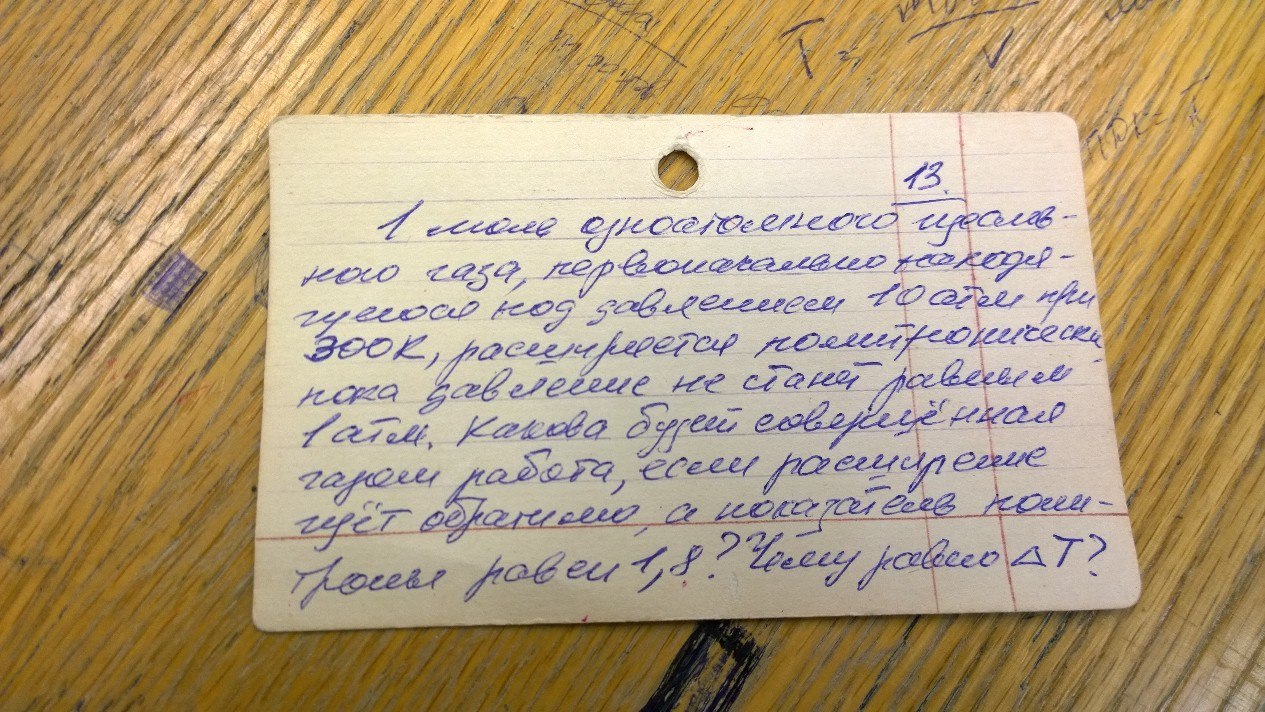 T =
V
13.
1 моль одноатомного идеаль-
ного газа, первоначально находя-
щегося под давлением 10 атм при
300К, расширяется политропически
пока давление не станет равным
1 атм. Какова будет совершённая
газом работа, если расширение
идёт обратимо, а показатель поли-
тропы равен 1,8? Чему равно ΔT?